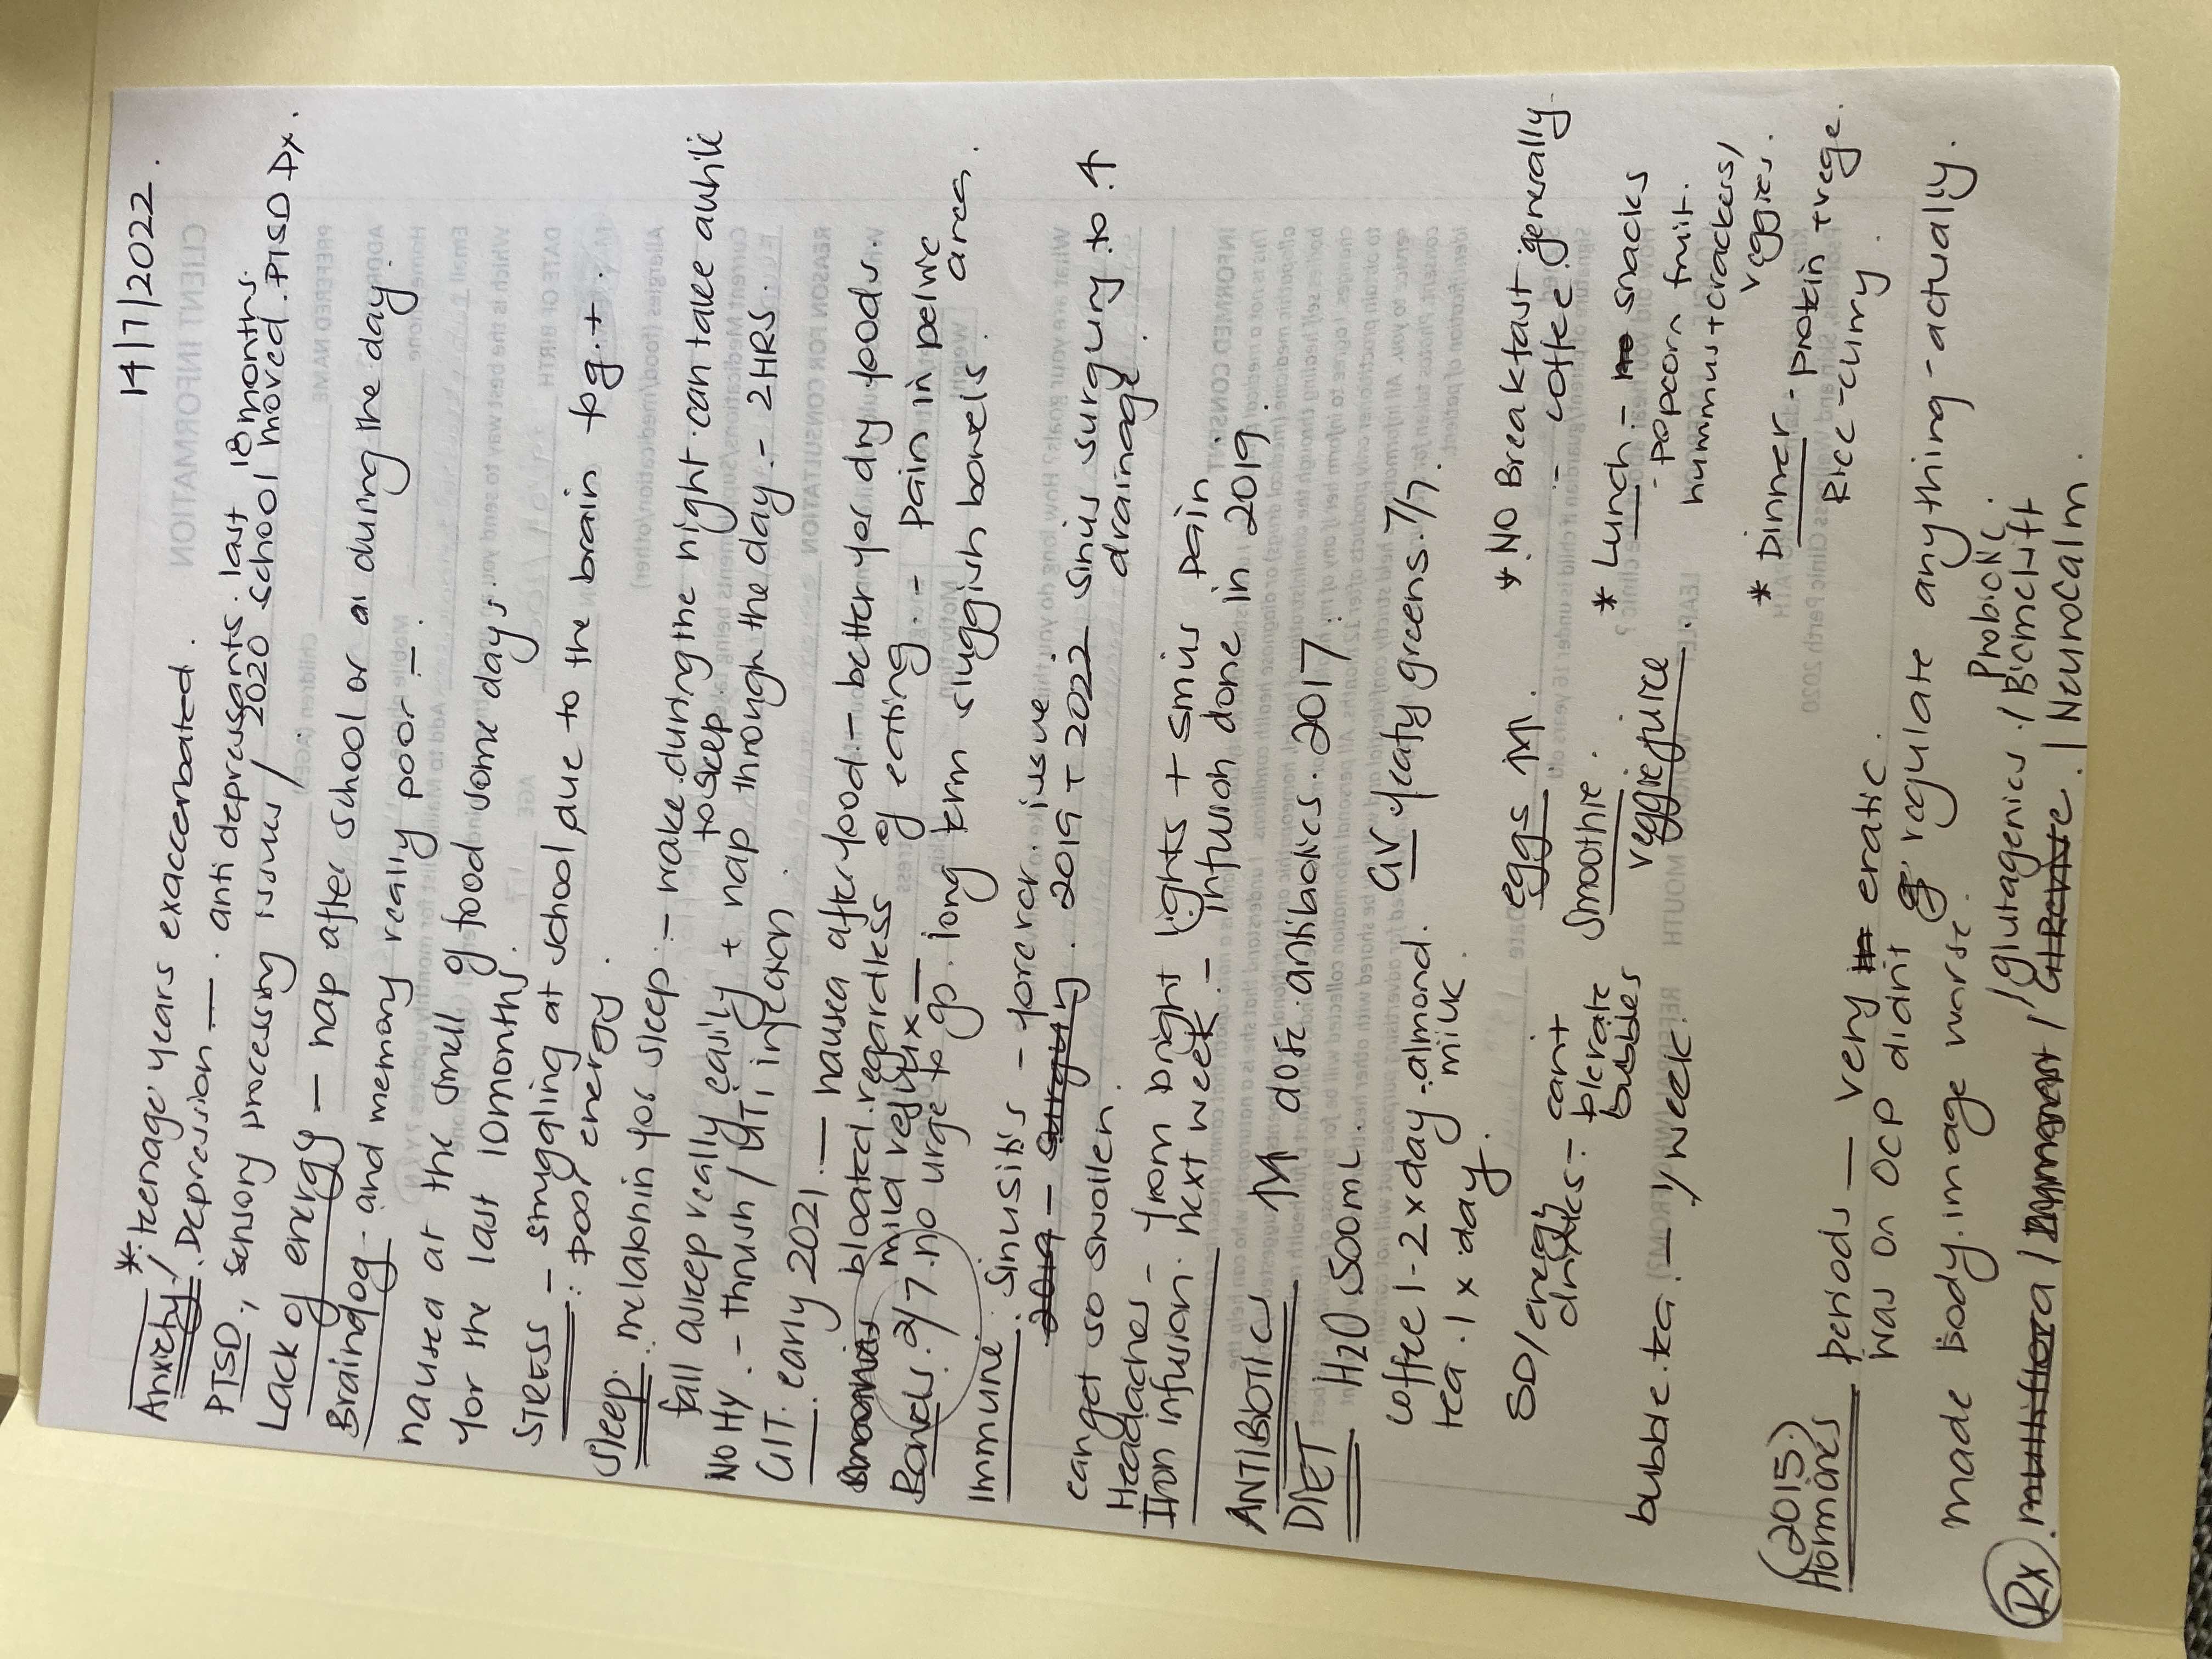 14/7/2022.
Anxiety/ * teenage years exaccerbated.
Depression — . anti depressants. last 18 months.
PTSD, sensory processing issues / 2020 school moved. PTSD Dx.
Lack of energy — nap after school or at during the day.
Brainfog - and memory really poor - .
nausea at the smell of food some days.
for the last 10 months.
STRESS - struggling at school due to the brain fog. +
: poor energy.
Sleep: melatonin for sleep: - wake during the night can take awhile to sleep.
fall asleep really easily + nap through the day. - 2HRS.
NO Hy. - thrush / UTI infection.
GIT. early 2021. — nausea after food. - better for dry foods.
bloated. regardless of eating. - Pain in pelvic area.
mild reflux —
Bowels. 2/7. no urge to go. long term sluggish bowels.
Immune: sinusitis - forever. issue.
2019 - surgury. 2019 + 2022 sinus surgury to ↑ drainage.
can get so swollen.
Headaches - from bright lights + sinus pain.
Iron infusion. next week - infusion done in 2019.
ANTIBIOTICS 1M dose antibiotics. 2017.
DIET H2O 500mL.
coffee 1-2 x day - almond milk. leafy greens. 7/7.
tea. 1 x day.
SD/energy drinks - cant tolerate bubbles
eggs
smoothie.
veggie juice.
bubble. tea. - 1/week.
* NO Breakfast generally.
- coffee.
* Lunch - snacks
- popcorn fruit.
hummus + crackers/ veggies.
* Dinner - protein + vege.
Rice - curry.
(2015)
Hormones periods — very eratic.
was on OCP didnt regulate anything - actually.
made body. image worse.
Rx. multiflora / / glutagenics. / Probiotic. / Biome Lift
/ Neurocalm.